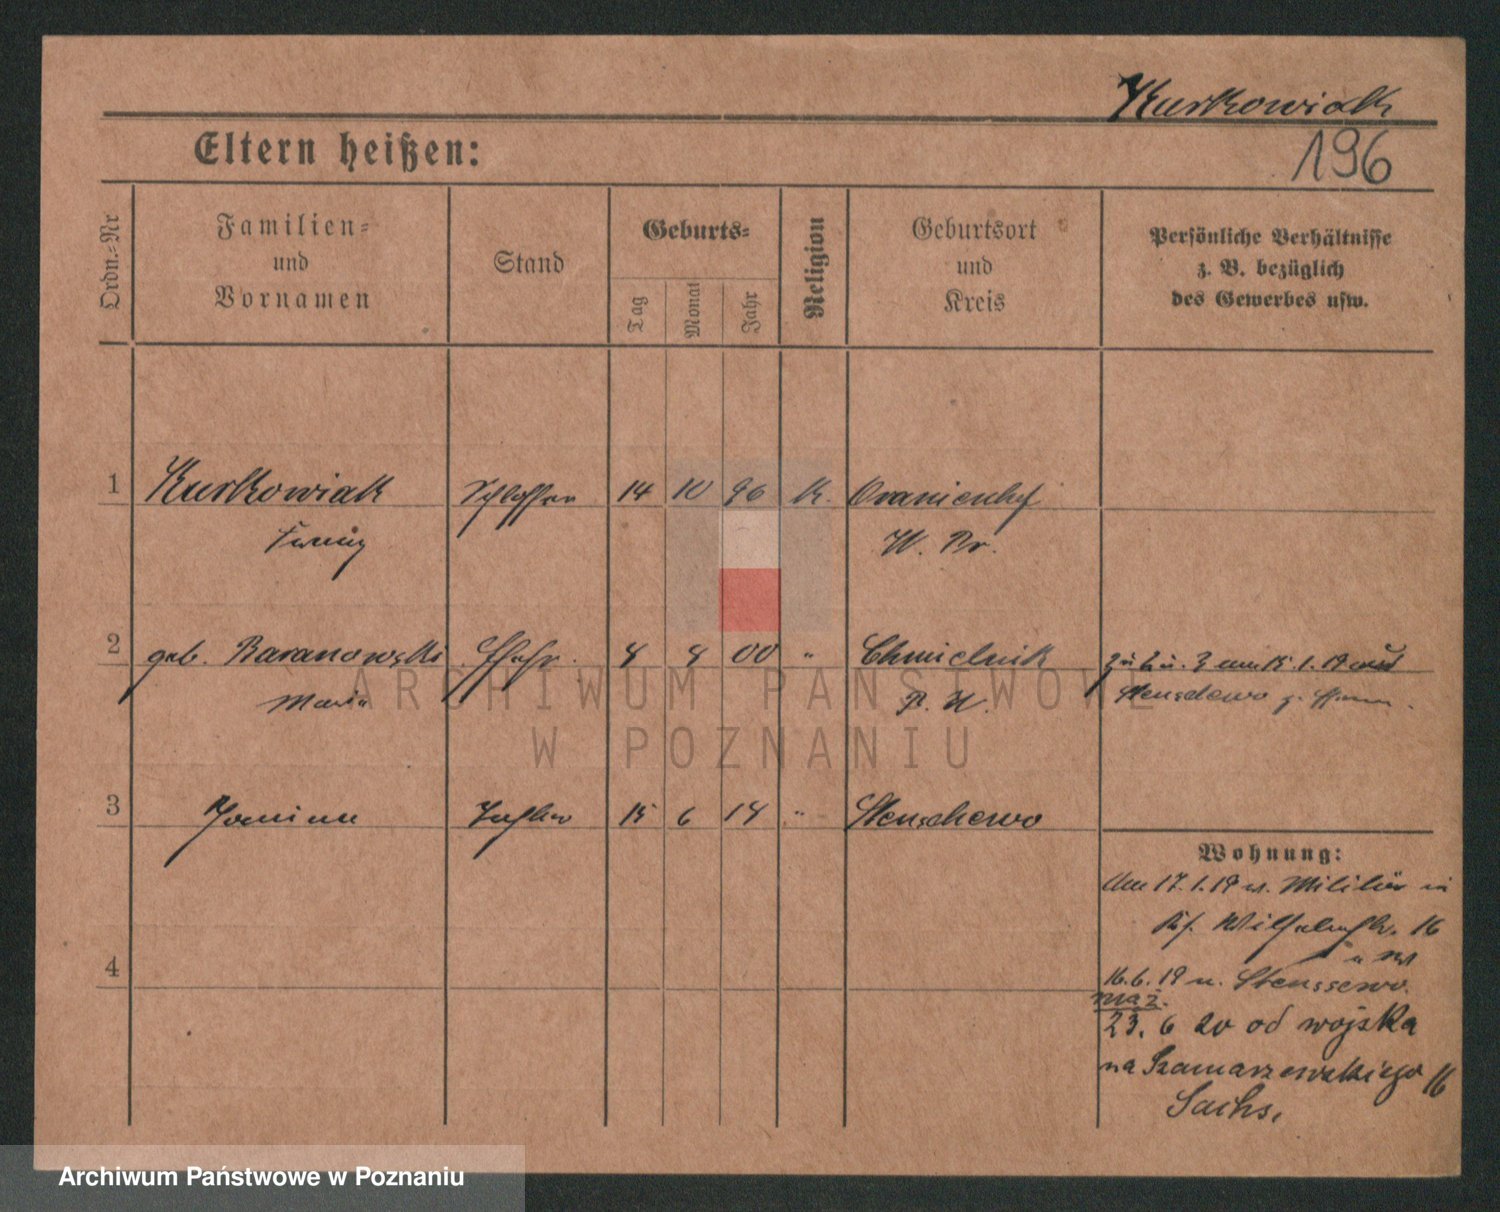 Kurkowiak
196
Eltern heißen:
Ordn.-Nr
Familien-
und
Vornamen
Stand
Geburts-
Tag
Monat
Jahr
Religion
Geburtsort
und
Kreis
Persönliche Verhältnisse
z. B. bezüglich
des Gewerbes usw.
1 Kurkowiak Schlosser 14 10 96 K. Oranienhof
W. Pr.
2 geb. Baranowski Ehefr. 8 8 00 " Chmielnik
Maria
R. P.
am 15.1.19 aus
Stenschewo
3 Tochter 15 6 18 " Stenschewo
Wohnung:
Am 17.1.19 v. Militär in
16
16.6.19 n. Stenszewo.
mąż
23. 6 20 od wojska
na Szamarzewskiego 16
Sachs.
4
ARCHIWUM PAŃSTWOWE
W POZNANIU
Archiwum Państwowe w Poznaniu